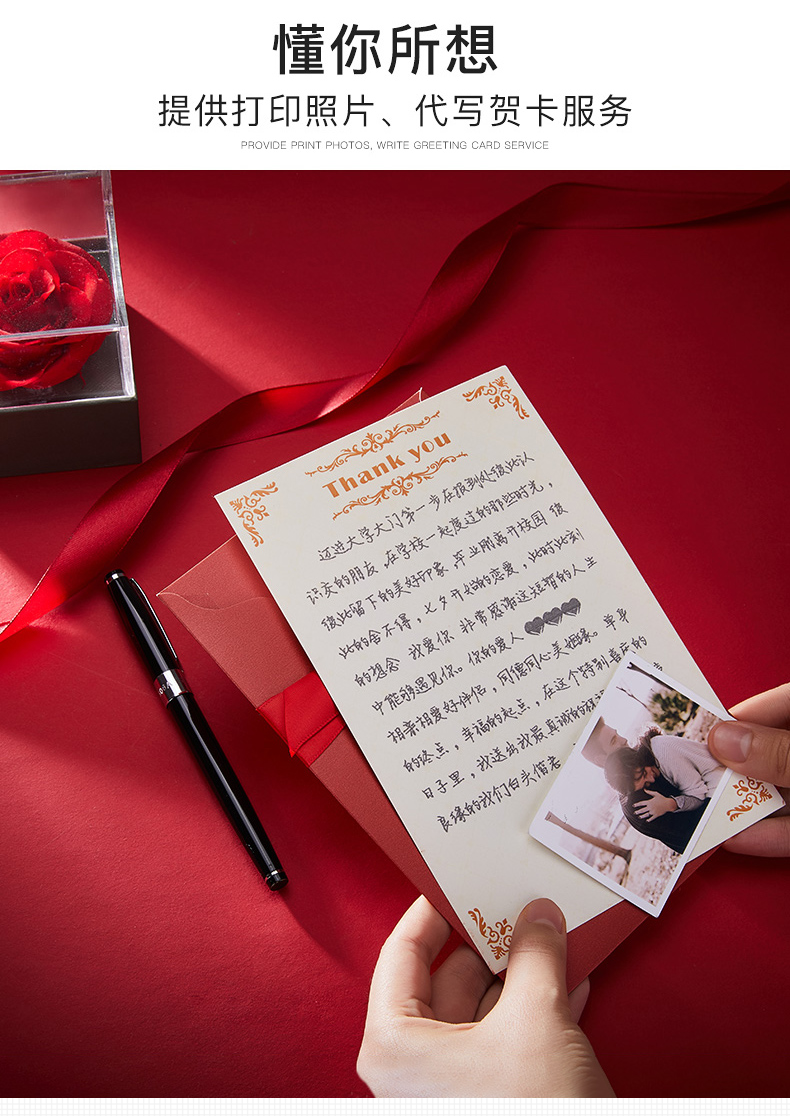 懂你所想
提供打印照片、代写贺卡服务
PROVIDE PRINT PHOTOS, WRITE GREETING CARD SERVICE
Thank you
迈进大学大门第一步在报到处彼此认
识交的朋友,在学校一起度过的那些时光,
彼此留下的美好印象,毕业刚离开校园 彼
此的舍不得,七夕开始的恋爱,此时此刻
的想念 我爱你 非常感谢这短暂的人生
中能够遇见你。你的爱人
相亲相爱好伴侣,同德同心美姻缘。单身
的终点,幸福的起点,在这个特别喜庆的
日子里,我送出我最真诚的祝
良缘的我们白头偕老